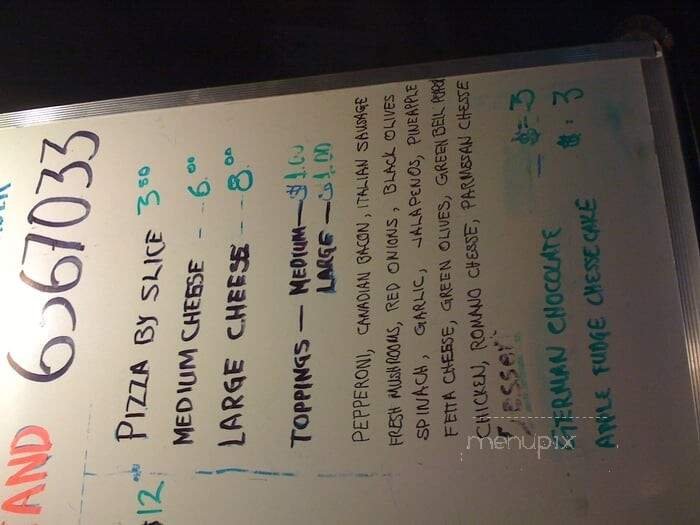 AND 6567033
PIZZA BY SLICE 3.00
MEDIUM CHEESE - - 6.00
LARGE CHEESE - - 8.00
TOPPINGS — MEDIUM — $1.00
LARGE — $1.00
PEPPERONI, CANADIAN BACON, ITALIAN SAUSAGE
FRESH MUSHROOMS, RED ONIONS, BLACK OLIVES
SPINACH, GARLIC, JALAPENOS, PINEAPPLE
FETTA CHEESE, GREEN OLIVES, GREEN BELL
CHICKEN, ROMANO CHESSE, PARMESAN CHESSE
Dessert
GERMAN CHOCOLATE — $ : 3
APPLE FUDGE CHESSE CAKE $ : 3
$12.00
menupix